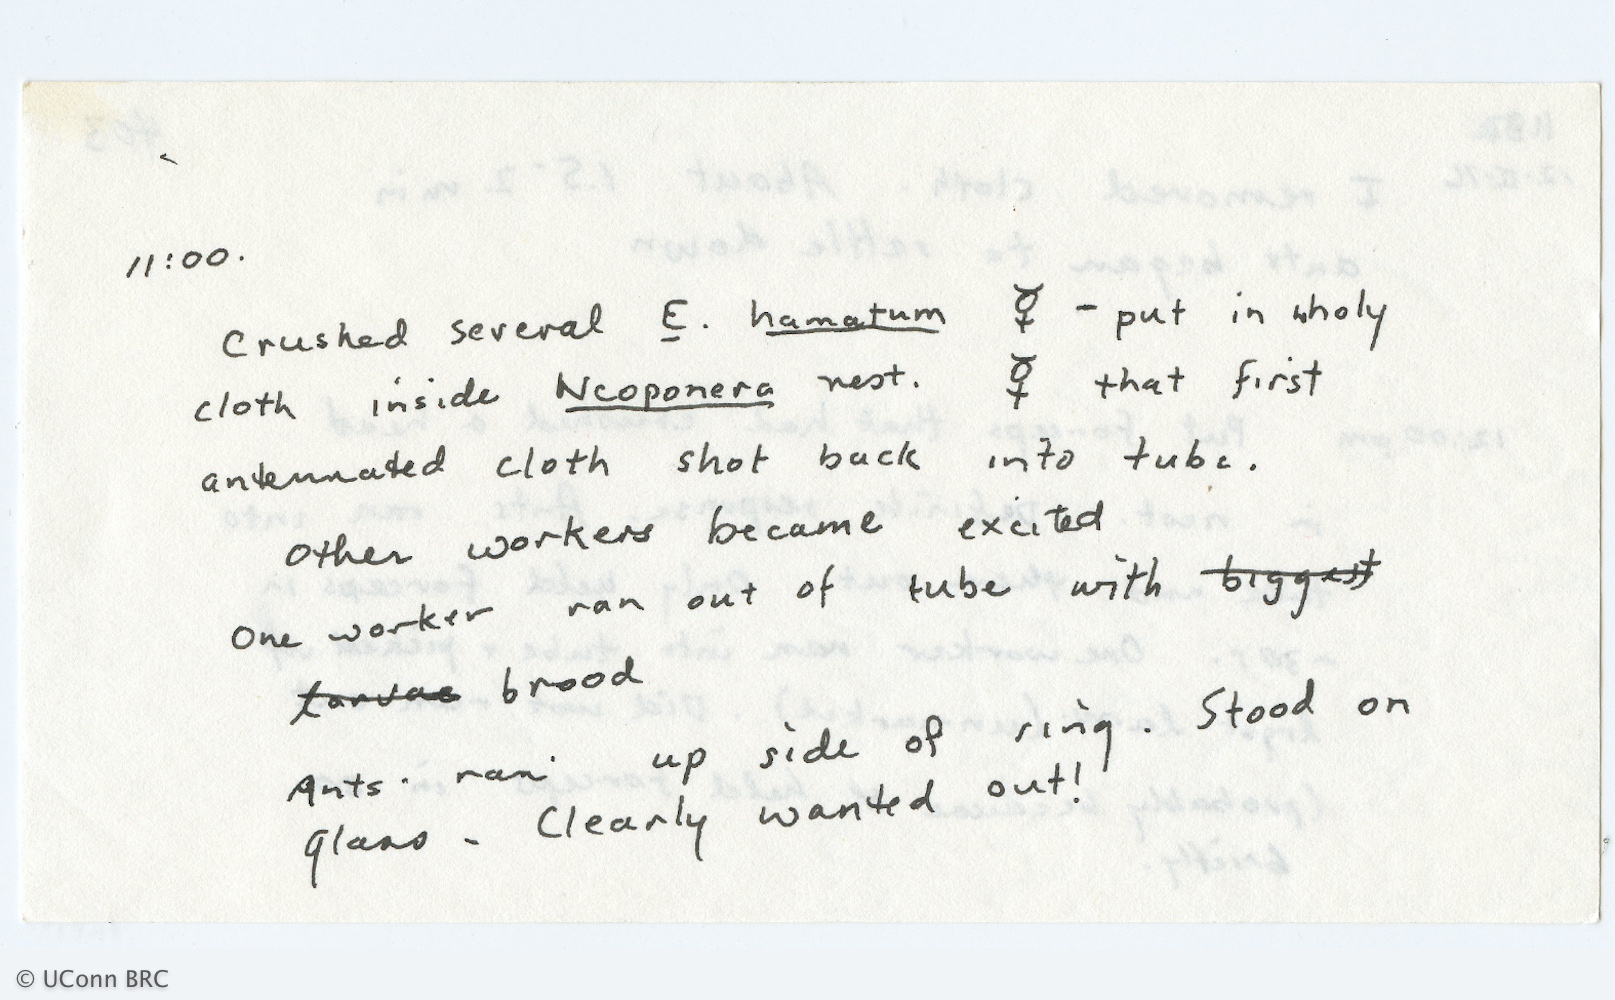 11:00.
Crushed several E. hamatum ☿ - put in wholy
cloth inside Neoponera nest. ☿ that first
antennated cloth shot back into tube.
Other workers became excited
One worker ran out of tube with ~~biggest~~
~~larvae~~ brood
Ants ran up side of ring. Stood on
glass - Clearly wanted out!
© UConn BRC